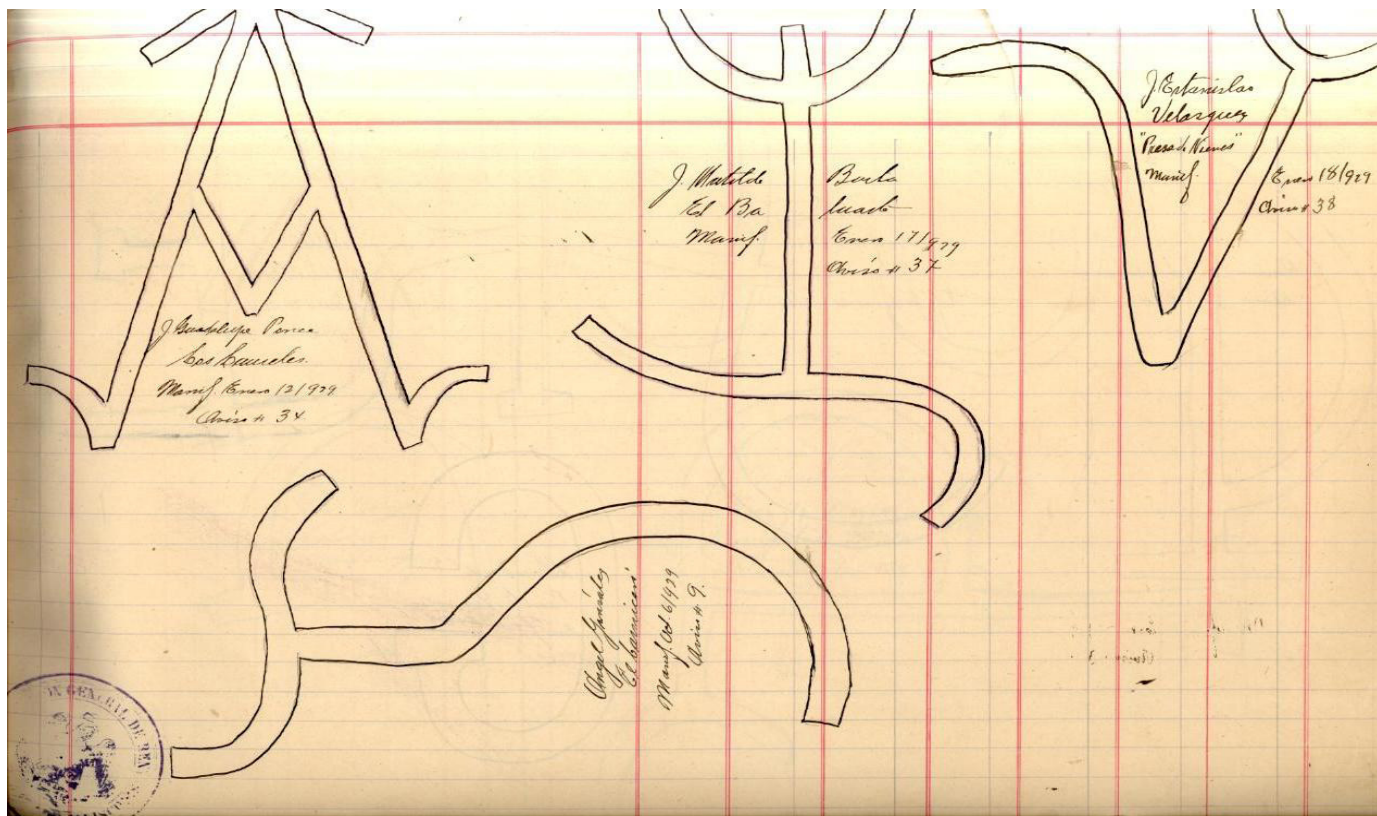 J. Guadalupe Ponce
Los Laureles.
Manif. Enero 12/929
Aviso # 34
J. Matilde Barba
El Ba luarte
Manif. Enero 17/929
Aviso # 37
J. Estanislao
Velasquez
"Presa de Nieves"
Manif. Enero 18/929
Aviso # 38
Angel González
El
Manif. Oct 6/929
Aviso # 9.
GENERAL DE